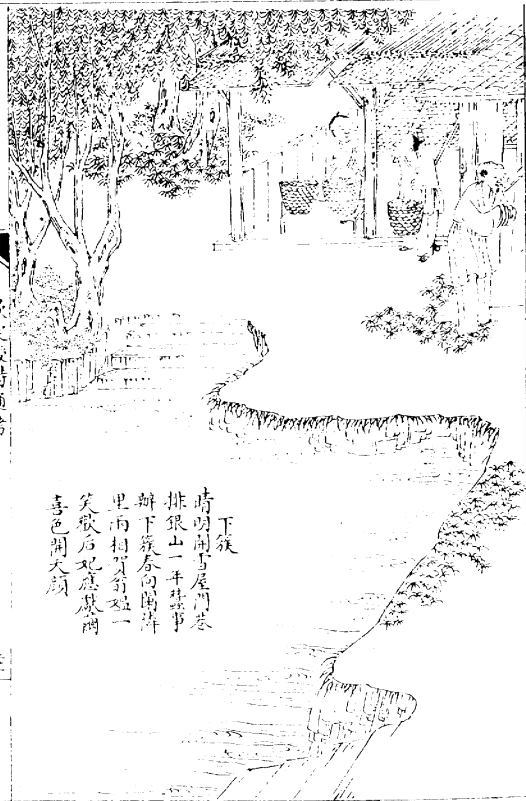 下簇
晴明開雪屋門巷
排銀山一年蠶事
辦下簇春向闌鄰
里兩相賀翁媼一
笑歡后妃應獻繭
喜色開天顏